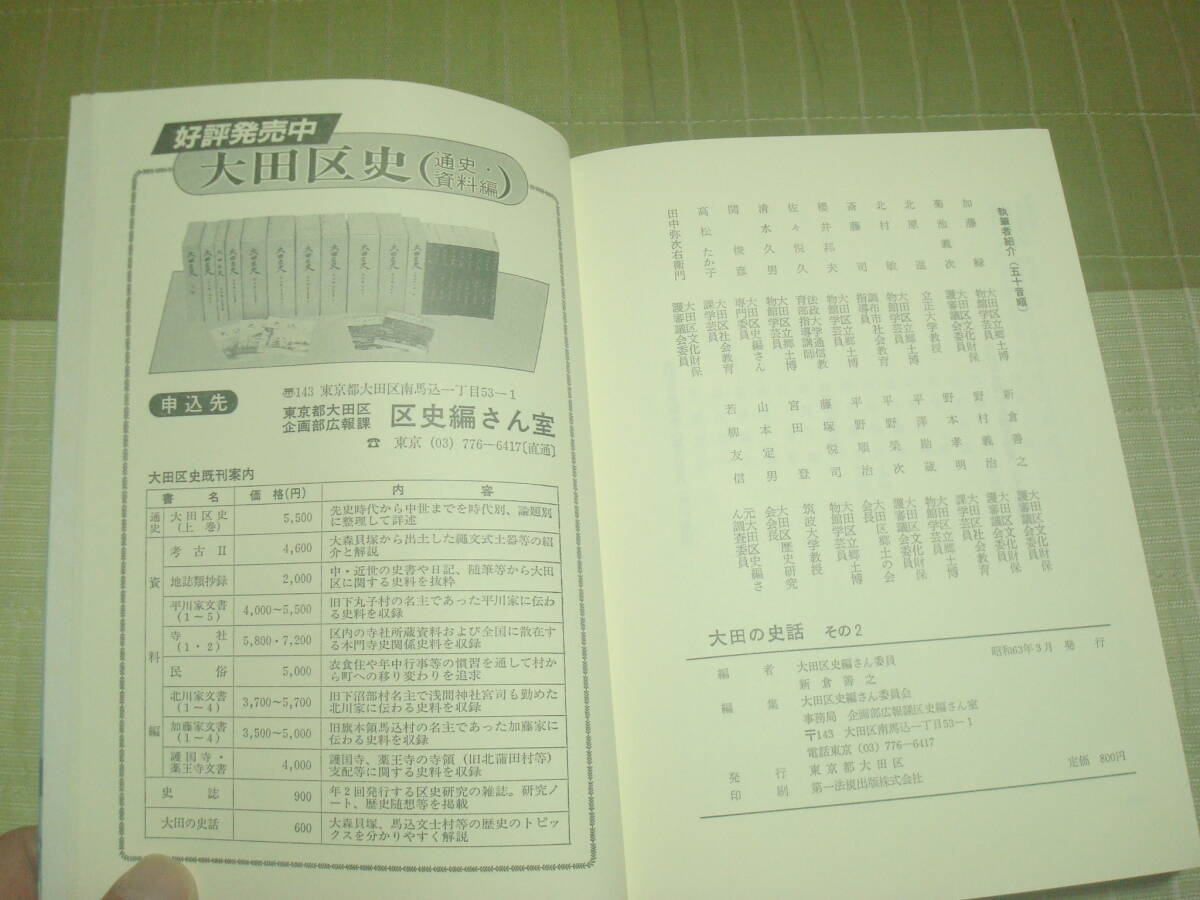 好評発売中
大田区史(通史・資料編)
申込先
〠143 東京都大田区南馬込一丁目53−1
東京都大田区
企画部広報課
区史編さん室
☎ 東京 (03) 776−6417[直通]
大田区史既刊案内
書名 価格(円) 内容
通史 大田区史(上巻) 5,500 先史時代から中世までを時代別、論題別に整理して詳述
資料編
考古Ⅱ 4,600 大森貝塚から出土した縄文式土器等の紹介と解説
地誌類抄録 2,000 中・近世の史書や日記、随筆等から大田区に関する史料を抜粋
平川家文書(1〜5) 4,000〜5,500 旧下丸子村の名主であった平川家に伝わる史料を収録
寺社(1・2) 5,800・7,200 区内の寺社所蔵資料および全国に散在する本門寺史関係史料を収録
民俗 5,000 衣食住や年中行事等の慣習を通して村から町への移り変わりを追求
北川家文書(1〜4) 3,700〜5,700 旧下沼部村名主で浅間神社宮司も勤めた北川家に伝わる史料を収録
加藤家文書(1〜4) 3,500〜5,000 旧旗本領馬込村の名主であった加藤家に伝わる史料を収録
護国寺・薬王寺文書 4,000 護国寺、薬王寺の寺領(旧北蒲田村等)支配等に関する史料を収録
史誌 900 年2回発行する区史研究の雑誌。研究ノート、歴史随想等を掲載
大田の史話 600 大森貝塚、馬込文士村等の歴史のトピックスを分かりやすく解説
執筆者紹介(五十音順)
加藤緑 大田区立郷土博物館学芸員
菊池義次 大田区文化財保護審議会委員
北原進 立正大学教授
北村敏 大田区立郷土博物館学芸員
斎藤司 調布市社会教育指導員
櫻井邦夫 大田区立郷土博物館学芸員
佐々悦久 法政大学通信教育部指導講師
清水久男 大田区立郷土博物館学芸員
関俊彦 大田区史編さん専門委員
高松たか子 大田区社会教育課学芸員
田中弥次右衛門 大田区文化財保護審議会委員
新倉善之 大田区文化財保護審議会委員
野村義治 大田区文化財保護審議会委員
野本孝明 大田区社会教育課学芸員
平澤勘蔵 大田区立郷土博物館学芸員
平野榮次 大田区文化財保護審議会委員
平野順治 大田区郷土の会会長
藤塚悦司 大田区立郷土博物館学芸員
宮田登 筑波大学教授
山本定男 大田区歴史研究会会長
若柳友信 元大田区史編さん調査委員
大田の史話 その2
昭和63年3月 発行
編者 大田区史編さん委員
新倉善之
編集 大田区史編さん委員会
事務局 企画部広報課区史編さん室
〒143 大田区南馬込一丁目53−1
電話東京 (03) 776−6417
発行 東京都大田区
印刷 第一法規出版株式会社
定価 800円